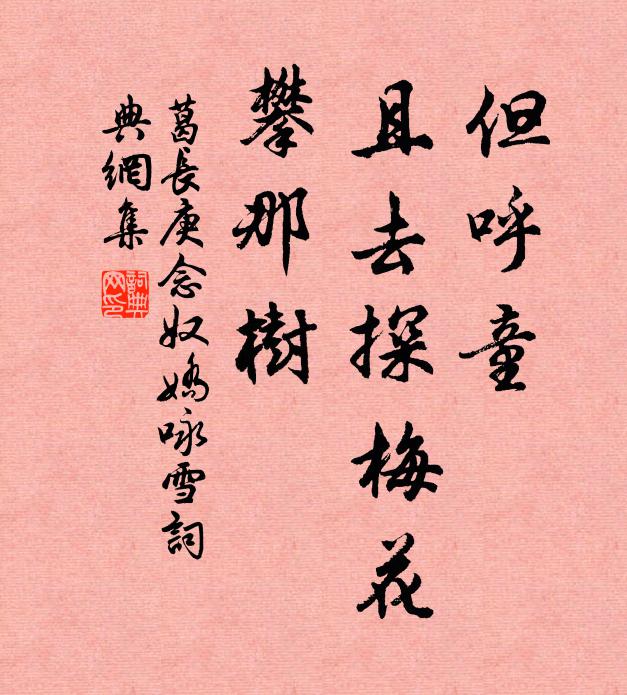 但呼童
且去探梅花
攀那樹
葛長庚念奴嬌咏雪詞
典網集
詞典
网印